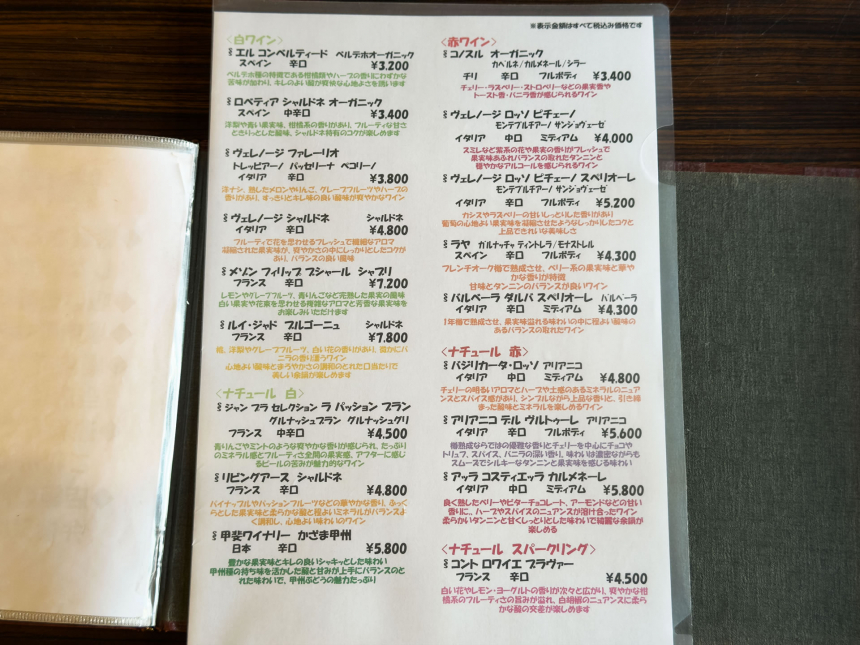 ※表示金額はすべて税込み価格です
〈白ワイン〉
エル コンベルティード ベルデホオーガニック
スペイン 辛口 ¥3,200
ベルデホ種の特徴である柑橘類やハーブの香りにわずかな
苦味が加わり、キレのよい酸が爽快な心地よさを誘います
ロペティア シャルドネ オーガニック
スペイン 中辛口 ¥3,400
洋梨や青い果実味、柑橘系の香りがあり、フルーティな甘さ
ときりっとした酸味、シャルドネ特有のコクが楽しめます
ヴェレノージ ファレーリオ
トレッビアーノ パッセリーナ ペコリーノ
イタリア 辛口 ¥3,800
洋ナシ、熟したメロンやりんご、グレープフルーツやハーブの
香りがあり、すっきりとキレ味の良い酸が爽やかなワイン
ヴェレノージ シャルドネ シャルドネ
イタリア 辛口 ¥4,800
フルーティで花を思わせるフレッシュで繊細なアロマ
凝縮された果実味が、爽やかさの中にしっかりとしたコクが
あり、バランスの良い酸味
メゾン フィリップ ブシャール シャブリ
フランス 辛口 ¥7,200
レモンやグレープフルーツ、青りんごなど完熟した果実の風味
白い果実や花束を思わせる複雑なアロマと芳香な果実味を
お楽しみいただけます
ルイ・ジャド ブルゴーニュ シャルドネ
フランス 辛口 ¥7,800
桃、洋梨やグレープフルーツ、白い花の香りがあり、微かにバ
ニラの香り漂うワイン
心地よい酸味とまろやかさの調和のとれた口当たりで
美しい余韻が楽しめます
〈ナチュール 白〉
ジャン ブラ セレクション ラ パッション ブラン
グルナッシュブラン グルナッシュグリ
フランス 中辛口 ¥4,500
青りんごやミントのような爽やかな香りが感じられ、たっぷり
のミネラル感とフルーティさ全開の果実感、アフターに感じ
るビールの苦みが魅力的なワイン
リビングアース シャルドネ
フランス 辛口 ¥4,800
パイナップルやパッションフルーツなどの華やかな香り、ふっく
らとした果実味と柔らかな酸と程よいミネラルがバランスよ
く調和し、心地よい味わいのワイン
甲斐ワイナリー かざま甲州
日本 辛口 ¥5,800
豊かな果実味とキレの良いシャキッとした味わい
甲州種の持ち味を活かした酸と甘みが上手にバランスのと
れた味わいで、甲州ぶどうの魅力たっぷり
〈赤ワイン〉
コノスル オーガニック
カベルネ/カルメネール/シラー
チリ 辛口 フルボディ ¥3,400
チェリー・ラズベリー・ストロベリーなどの果実香や
トースト香・バニラ香が感じられるワイン
ヴェレノージ ロッソ ピチェーノ
モンテプルチアーノ/サンジョヴェーゼ
イタリア 中口 ミディアム ¥4,000
スミレなど紫系の花や果実の香りがフレッシュで
果実味あふれバランスの取れたタンニンと
穏やかなアルコールを感じられるワイン
ヴェレノージ ロッソ ピチェーノ スペリオーレ
モンテプルチアーノ/サンジョヴェーゼ
イタリア 辛口 フルボディ ¥5,200
カシスやラズベリーの甘いしっとりした香りがあり
葡萄の心地よい果実味を凝縮させたようなしっかりしたコクと
上品できれいな美味しさ
ラヤ ガルナッチャ ティントレラ/モナストレル
スペイン 辛口 フルボディ ¥4,300
フレンチオーク樽で熟成させ、ベリー系の果実味と華や
かな香りが特徴
甘味とタンニンのバランスが良いワイン
バルベーラ ダルバ スペリオーレ バルベーラ
イタリア 辛口 ミディアム ¥4,300
1年樽で熟成させ、果実味溢れる味わいの中に程よい酸味の
あるバランスの取れたワイン
〈ナチュール 赤〉
バジリカータ・ロッソ アリアニコ
イタリア 中口 ミディアム ¥4,800
チェリーの明るいアロマとハーブや土感のあるミネラルのニュア
ンスとスパイス感があり、シンプルながら上品な香りと、引き締
まった酸味とミネラルを楽しめるワイン
アリアニコ デル ヴルトゥーレ アリアニコ
イタリア 辛口 フルボディ ¥5,600
樽熟成ならではの優雅な香りとチェリーを中心にチョコや
トリュフ、スパイス、バニラの深い香り。味わいは濃密ながらも
スムースでシルキーなタンニンと果実味を感じる味わい
アッラ コスティエッラ カルメネーレ
イタリア 中口 ミディアム ¥5,800
良く熟したベリーやビターチョコレート、アーモンドなどの甘い
香りに、ハーブやスパイスのニュアンスが溶け合ったワイン
柔らかいタンニンと甘くしっとりとした味わいで綺麗な余韻が
楽しめる
〈ナチュール スパークリング〉
コント ロワイエ ブラヴァー
フランス 辛口 ¥4,500
白い花やレモン・ヨーグルトの香りが次々と広がり、爽やかな柑
橘系のフルーティさの旨みが溢れ、白胡椒のニュアンスに柔ら
かな酸の交差が楽しめます